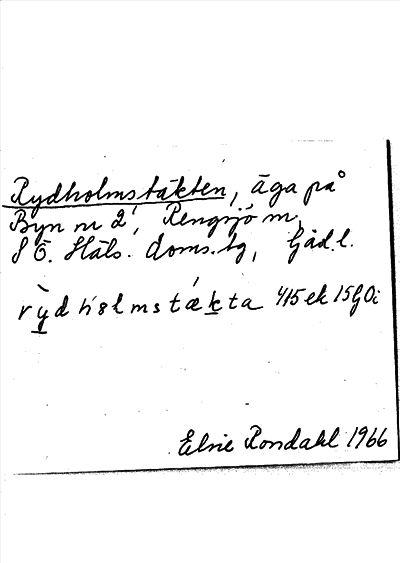 Rydholmstäkten, äga på
Byn nr 2', Rengsjö sn,
S Ö. Häls. doms.tg, Gävl.l.
rỳdhɵlmstækta 4/5 ek 15 G0i
Elsie Rondahl 1966